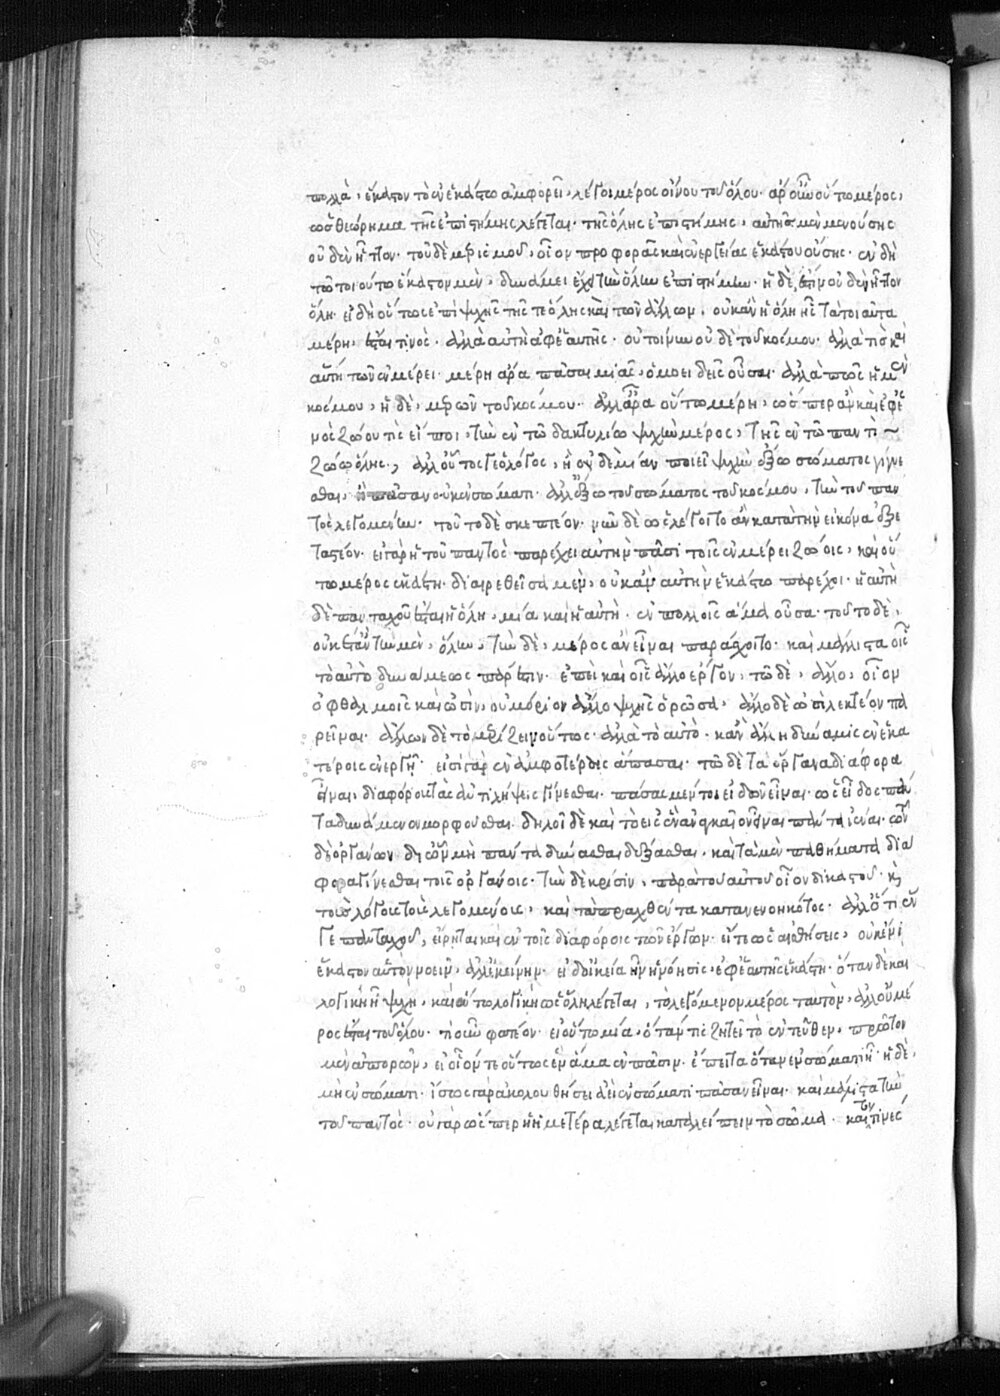 πολλὰ, ἕκαστον τὸ ἐν ἑκάστῳ ἀμφορεῖ, λέγοι μέρος οἴνου τοῦ ὅλου. ἆρ' οὖν οὕτω μέρος,
ὡς θεώρημα τῆς ἐπιστήμης λέγεται, τῆς ὅλης ἐπιστήμης, αὐτῆς μὲν μενούσης
οὐδὲν ἧττον. τοῦ δὲ μερισμοῦ, οἷον προφορᾶς καὶ ἐνεργείας ἑκάστου οὔσης. ἐν δὴ
τῷ τοιούτῳ ἕκαστον μὲν, δυνάμει ἔχει τὴν ὅλην ἐπιστήμην. ἡ δὲ, ἔστιν οὐδὲν ἧττον
ὅλη. εἰ δὴ οὕτως ἐπὶ ψυχῆς τῆς τε ὅλης καὶ τῶν ἄλλων, οὐκ ἂν ἡ ὅλη ἧς τὰ τοιαῦτα
μέρη, ἔσται τινός. ἀλλὰ αὐτὴ ἀφ' ἑαυτῆς. οὐ τοίνυν οὐδὲ τοῦ κόσμου. ἀλλά τις καὶ
αὕτη τῶν ἐν μέρει. μέρη ἄρα πᾶσαι μιᾶς, ὁμοειδεῖς οὖσαι. ἀλλὰ πῶς ἡ μὲν
κόσμου, ἡ δὲ, μερῶν τοῦ κόσμου. ἀλλ' ἆρα οὕτω μέρη, ὥσπερ ἂν καὶ ἐφ' ἑ
νὸς ζώου τὶς εἴποι, τὴν ἐν τῷ δακτύλῳ ψυχὴν μέρος, τῆς ἐν τῷ παντὶ
ζώῳ ὅλης, ἀλλ' οὗτος γε ὁ λόγος, ἢ οὐδεμίαν ποιεῖ ψυχὴν ἔξω σώματος γίνε
σθαι, ἢ πᾶσαν οὐκ ἐν σώματι. ἀλλ' ἔξω τοῦ σώματος τοῦ κόσμου, τὴν τοῦ παν
τὸς λεγομένην. τοῦτο δὲ σκεπτέον. νῦν δὲ ὡς λέγοιτο ἂν κατὰ τὴν εἰκόνα ἐξε
ταστέον. εἰ γὰρ ἡ τοῦ παντὸς παρέχει αὐτὴν πᾶσι τοῖς ἐν μέρει ζώοις, καὶ οὕ
τω μέρος ἑκάστη. διαιρεθεῖσα μὲν, οὐκ ἂν αὐτὴν ἑκάστῳ παρέχοι. ἡ αὐτὴ
δὲ πανταχοῦ ἔσται ἡ ὅλη, μία καὶ ἡ αὐτὴ. ἐν πολλοῖς ἅμα οὖσα. τοῦτο δὲ,
οὐκέτ' ἂν τὴν μὲν, ὅλην, τὴν δὲ, μέρος ἂν εἶναι παράσχοιτο. καὶ μάλιστα οἷς
τὸ αὐτὸ δυνάμεως πάρεστιν. ἐπεὶ καὶ οἷς ἄλλο ἔργον, τῷ δὲ, ἄλλο, οἷον
ὀφθαλμοῖς καὶ ὠσὶν, οὐ μόριον ἄλλο ψυχῆς ὁράσει, ἄλλο δὲ ὠσὶ λεκτέον πα
ρεῖναι. ἄλλων δὲ τὸ μερίζειν οὕτως. ἀλλὰ τὸ αὐτὸ. κἂν ἄλλη δύναμις ἐν ἑκα
τέροις ἐνεργῇ. εἰσὶ γὰρ ἐν ἀμφοτέραις ἅπασαι. τῷ δὲ τὰ ὄργανα διάφορα
εἶναι, διαφόρους τὰς ἀντιλήψεις γίνεσθαι. πάσας μέντοι εἰδῶν εἶναι. ὡς εἶδος πάν
τα δυνάμενον μορφοῦσθαι. δηλοῖ δὲ καὶ τὸ εἰς ἓν ἀνάγκαιον εἶναι πάντα ἰέναι. τῶν
δι' ὀργάνων δι' ὧν μὴ πάντα δύνασθαι δέξασθαι. καὶ τὰ μὲν παθήματα διά
φορα γίνεσθαι τοῖς ὀργάνοις. τὴν δὲ κρίσιν, παρὰ τοῦ αὐτοῦ οἷον δικαστοῦ. καὶ
τοὺς λόγους τοὺς λεγομένους, καὶ τὰ πραχθέντα κατανενοηκότος. ἀλλ' ὅτι ἕν
γε πανταχοῦ, εἴρηται καὶ ἐν τοῖς διαφόροις τῶν ἔργων. εἴ τε ὡς αἱ αἰσθήσεις, οὐκ ἔνι
ἕκαστον αὐτὸν νοεῖν, ἀλλ' ἐκείνην. εἰ δ' οἰκεία ἦν ἡ νόησις, ἐφ' ἑαυτῆς ἑκάστη. ὅταν δὲ καὶ
λογικὴ ἢ ψυχὴ, καὶ οὕτω λογικὴ ὡς ὅλη λέγεται, τὸ λεγόμενον μέρος ταυτὸν, ἀλλ' οὐ μέ
ρος ἔσται τοῦ ὅλου. τί οὖν φατέον. εἰ οὕτω μία, ὅταν τις ζητεῖ τὸ ἐντεῦθεν, πρῶτον
μὲν ἀπορῶν, εἰ οἷόν τε οὕτως ἓν ἅμα ἐν πᾶσιν. ἔπειτα ὅταν ἐν σώματι ᾖ. ἡ δὲ,
μὴ ἐν σώματι. ἴσως γὰρ ἀκολουθήσει ἀεὶ ἐν σώματι πᾶσαν εἶναι. καὶ μάλιστα τὴν
τοῦ παντός. οὐ γὰρ ὥσπερ ἡ ἡμετέρα λέγεται καταλείπειν τὸ σῶμα. καίτοι τινὲς